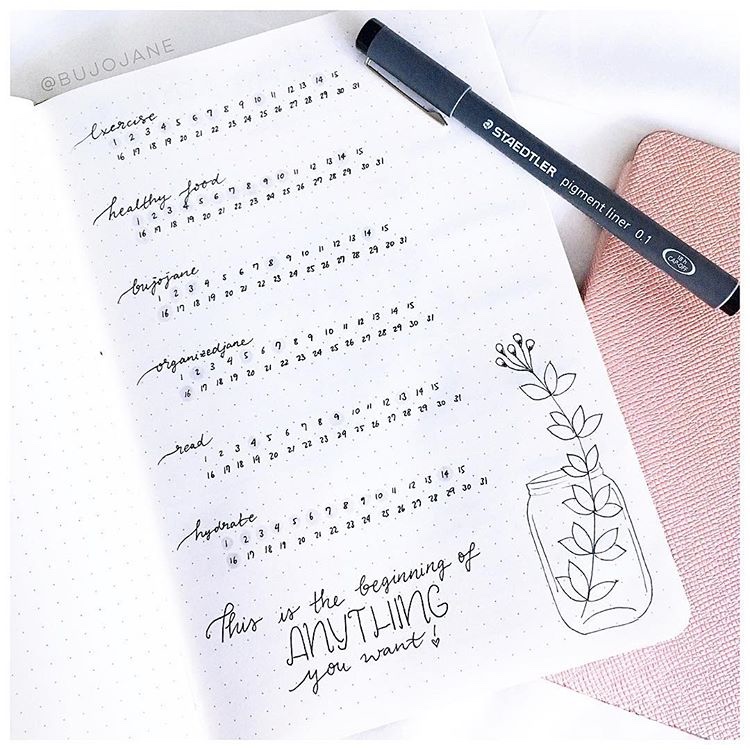 @BUJOJANE
exercise
1 2 3 4 5 6 7 8 9 10 11 12 13 14 15
16 17 18 19 20 21 22 23 24 25 26 27 28 29 30 31
healthy food
1 2 3 4 5 6 7 8 9 10 11 12 13 14 15
16 17 18 19 20 21 22 23 24 25 26 27 28 29 30 31
bujojane
1 2 3 4 5 6 7 8 9 10 11 12 13 14 15
16 17 18 19 20 21 22 23 24 25 26 27 28 29 30 31
organizedjane
1 2 3 4 5 6 7 8 9 10 11 12 13 14 15
16 17 18 19 20 21 22 23 24 25 26 27 28 29 30 31
read
1 2 3 4 5 6 7 8 9 10 11 12 13 14 15
16 17 18 19 20 21 22 23 24 25 26 27 28 29 30 31
hydrate
1 2 3 4 5 6 7 8 9 10 11 12 13 14 15
16 17 18 19 20 21 22 23 24 25 26 27 28 29 30 31
This is the beginning of
ANYTHING
you want!
STAEDTLER
pigment liner 0.1
CAP-OFF